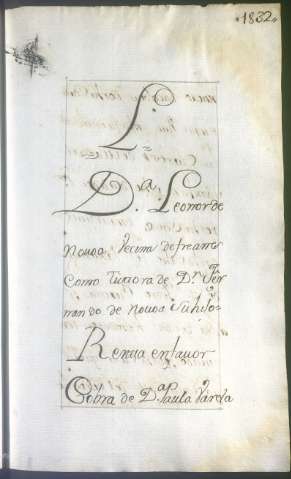 *1832*
L.
D.ª Leonor de
Novoa, Vecina de freanes
Como Tutora de D.ⁿ Fer
nando de Novoa su hijo
Renta en favor
Cobra de D.ª Paula Varela